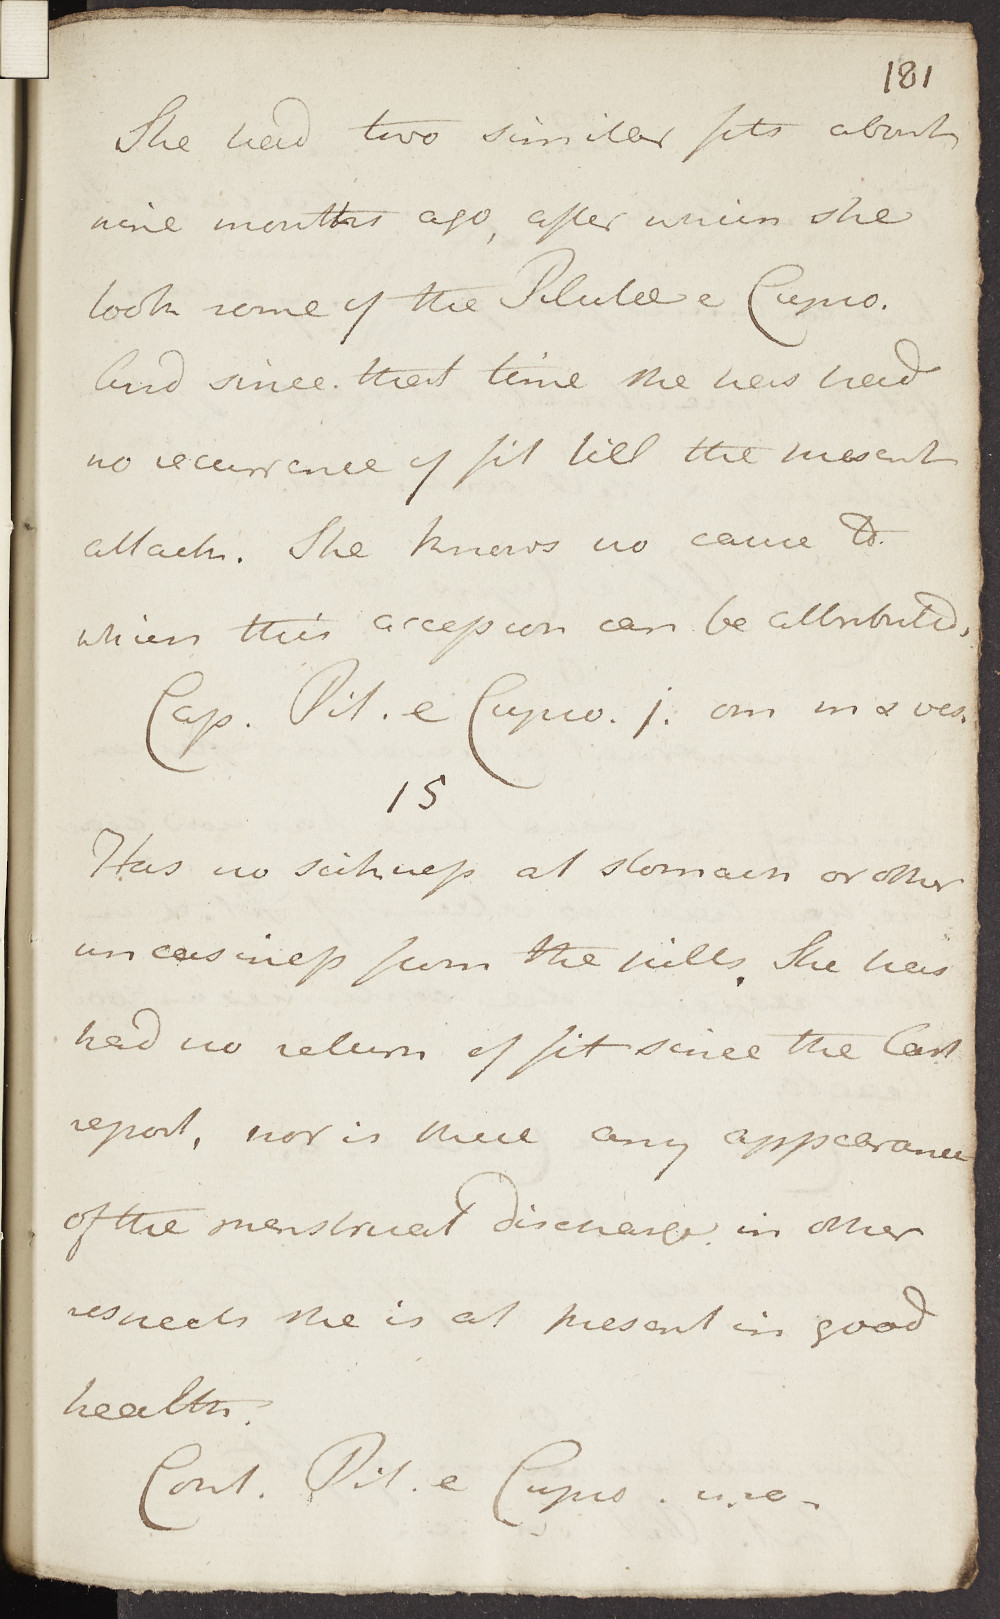 181
She had two similar fits about
nine months ago, after which she
took some of the Pilulæ e Cupro.
And since that time she has had
no recurrence of fit till the present
attack. She knows no cause to
which this accession can be attributed.
Cap. Pil. e Cupro. j. om m & ves.
15
Has no sickness at stomach or other
uneasiness from the pills. She has
had no return of fit since the last
report, nor is there any appearance
of the menstrual discharge. in other
respects she is at present in good
health.
Cont. Pil. e Cupro.